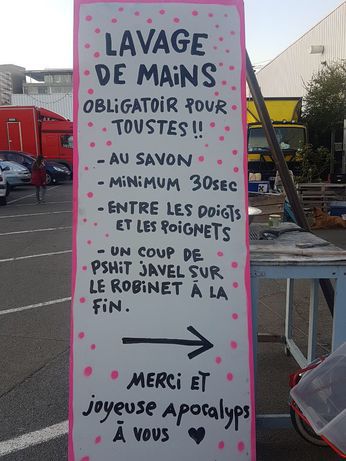 LAVAGE
DE MAINS
OBLIGATOIR POUR
TOUSTES!!
- AU SAVON
- MINIMUM 30SEC
- ENTRE LES DOIGTS
ET LES POIGNETS
- UN COUP DE
PSHIT JAVEL SUR
LE ROBINET À LA
FIN.
→
MERCI ET
joyeuse APOCALYPS
À VOUS ♥